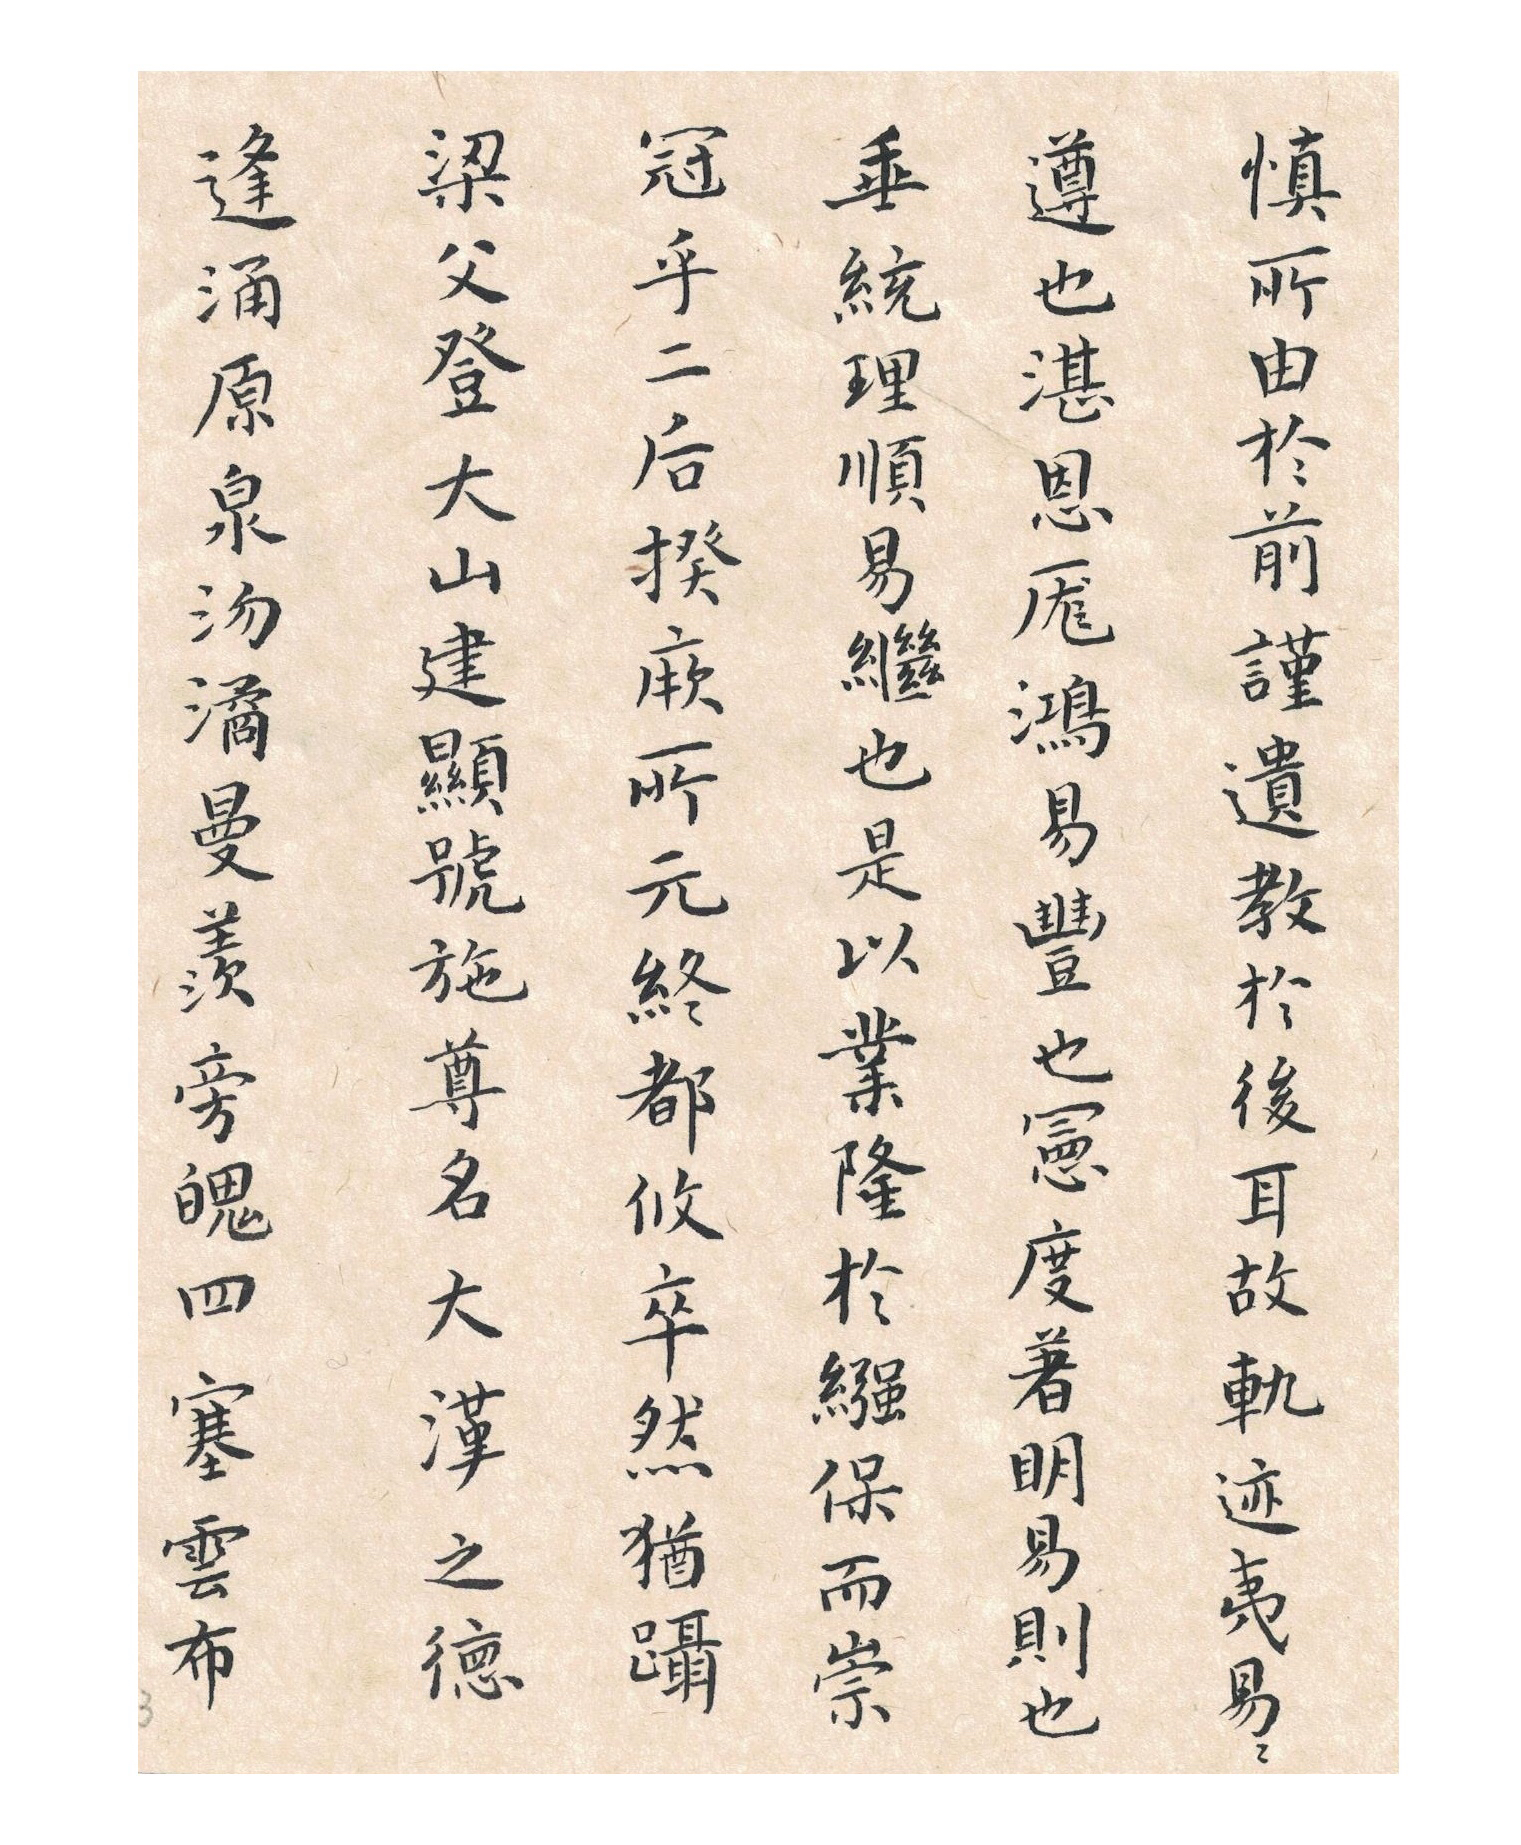 慎所由於前謹遺教於後耳故軌迹夷易〻
遵也湛恩厖鴻易豐也憲度著明易則也
垂統理順易繼也是以業隆於繈保而崇
冠乎二后揆厥所元終都攸卒然猶躡
梁父登大山建顯號施尊名大漢之德
逢涌原泉沕潏曼羨旁魄四塞雲布